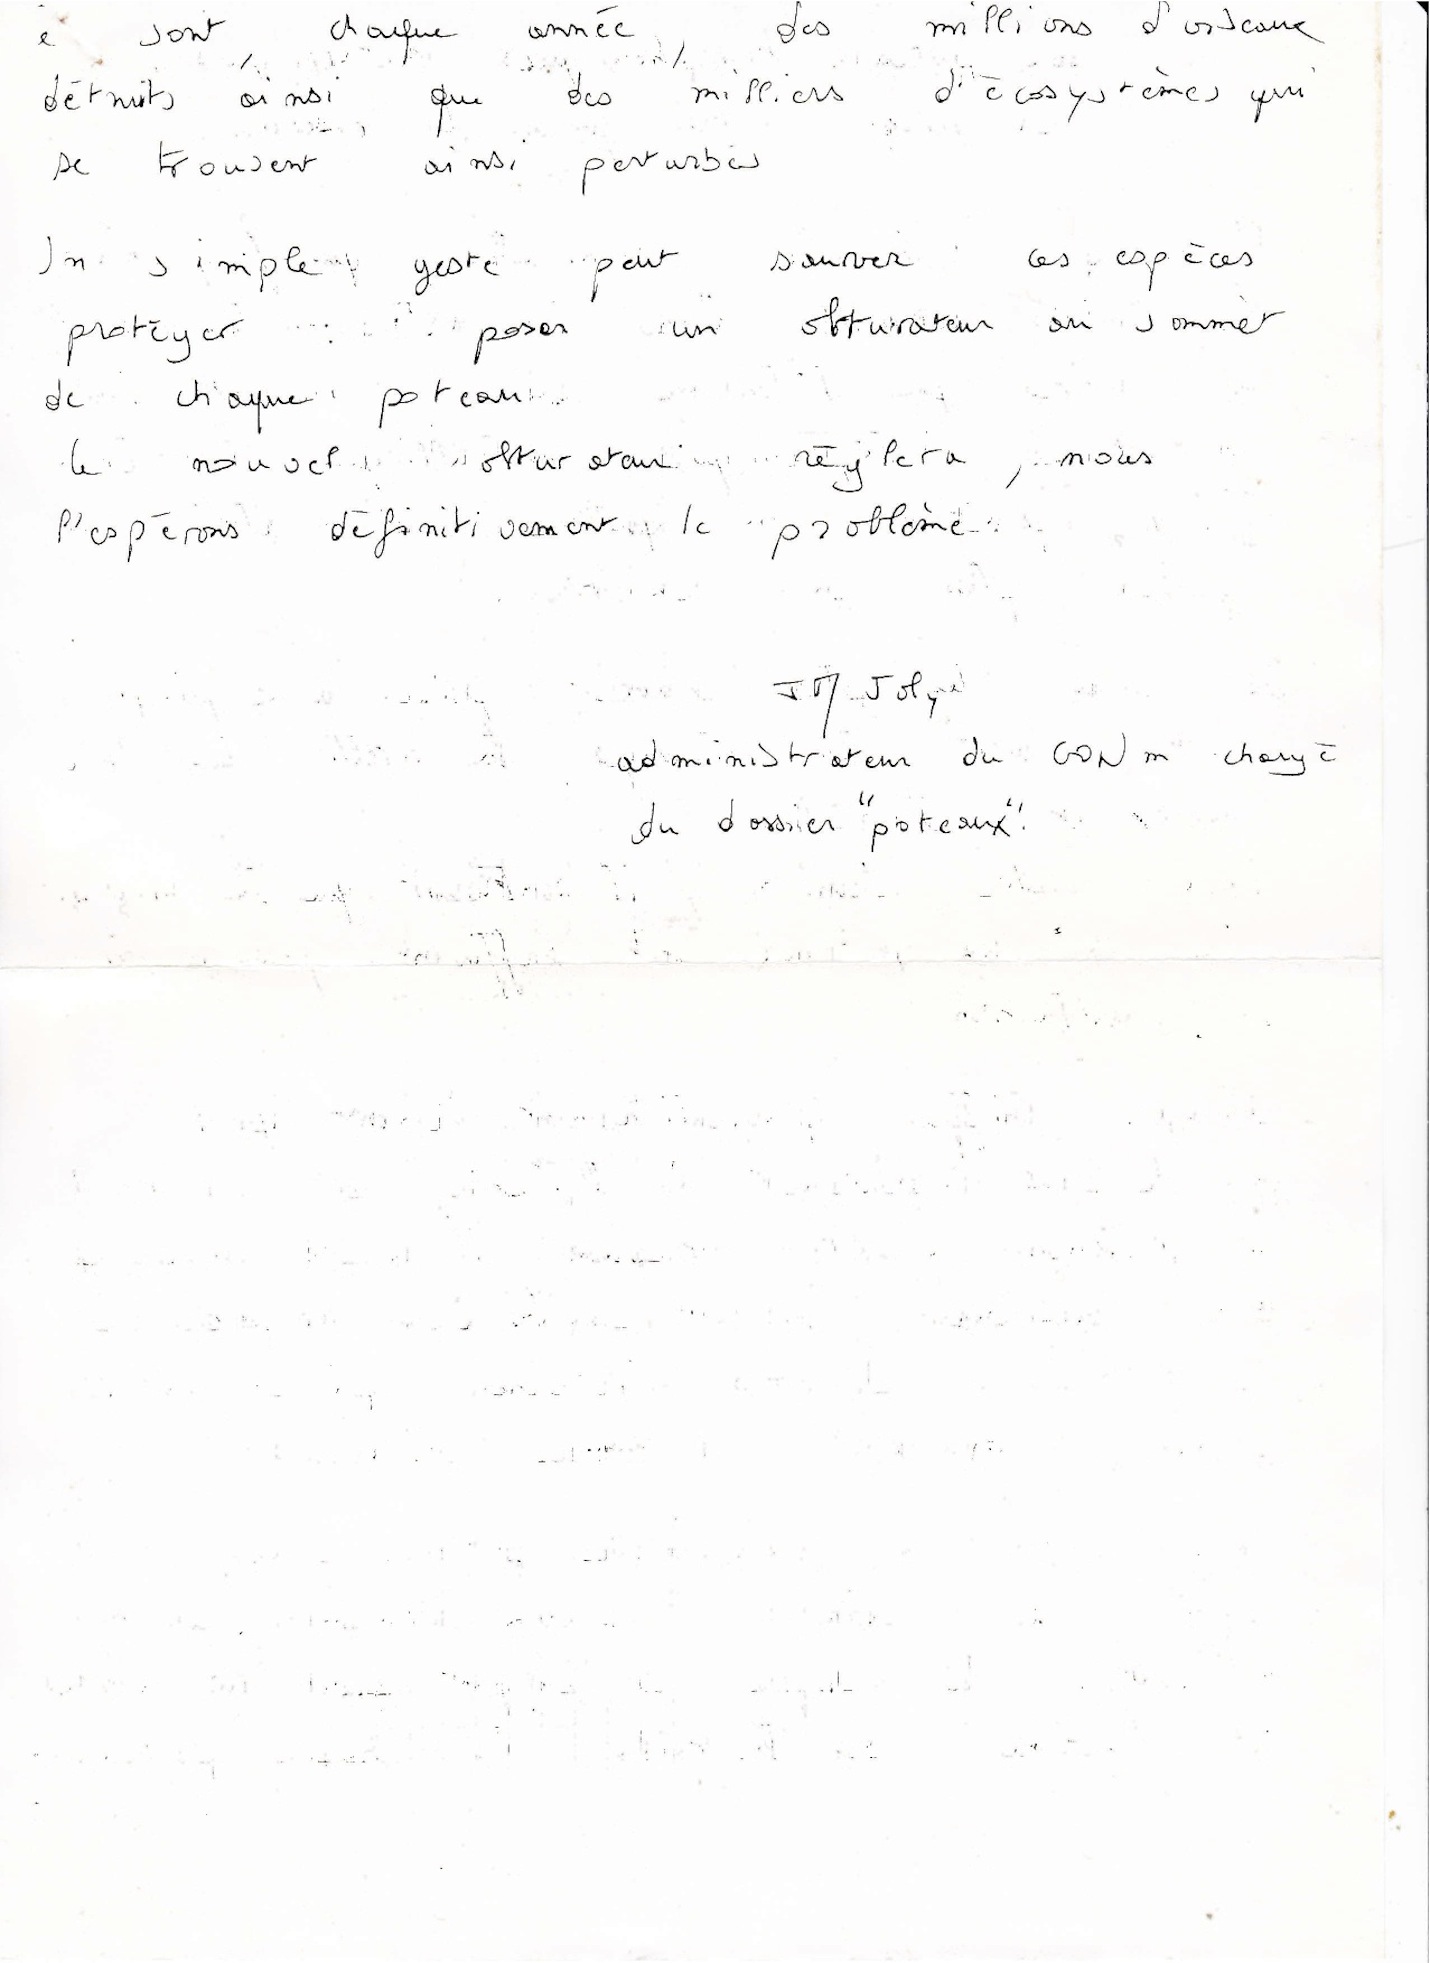 e sont, chaque année, des millions d'oiseaux
détruits ainsi que des milliers d'écosystèmes qui
se trouvent ainsi perturbés
Un simple geste peut sauver ces espèces
protéger : poser un obturateur au sommet
de chaque poteau
le nouvel obturateur règlera, nous
l'espérons définitivement le problème
JM Joly
administrateur du GONm chargé
du dossier "poteaux".